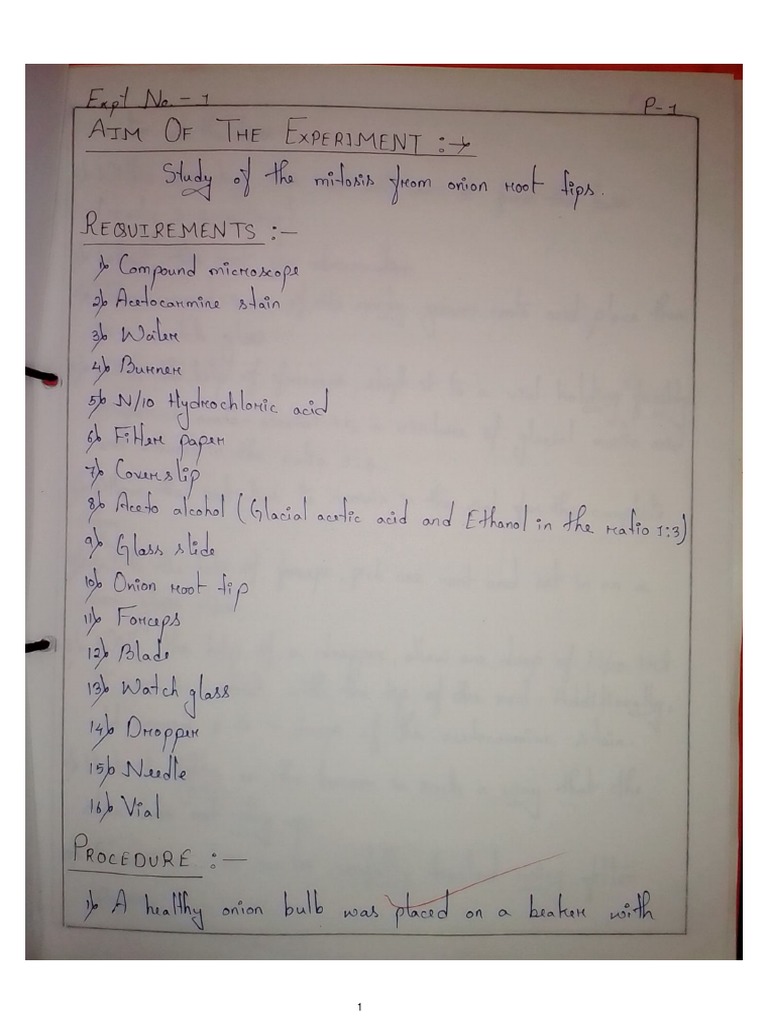 Expt No. - 1
P-1
AIM OF THE EXPERIMENT :→
Study of the mitosis from onion root tips.
REQUIREMENTS :-
1) Compound microscope
2) Acetocarmine stain
3) Water
4) Burner
5) N/10 Hydrochloric acid
6) Filter paper
7) Coverslip
8) Aceto alcohol (Glacial acetic acid and Ethanol in the ratio 1:3)
9) Glass slide
10) Onion root tip
11) Forceps
12) Blade
13) Watch glass
14) Dropper
15) Needle
16) Vial
PROCEDURE :-
1) A healthy onion bulb was placed on a beaker with
1